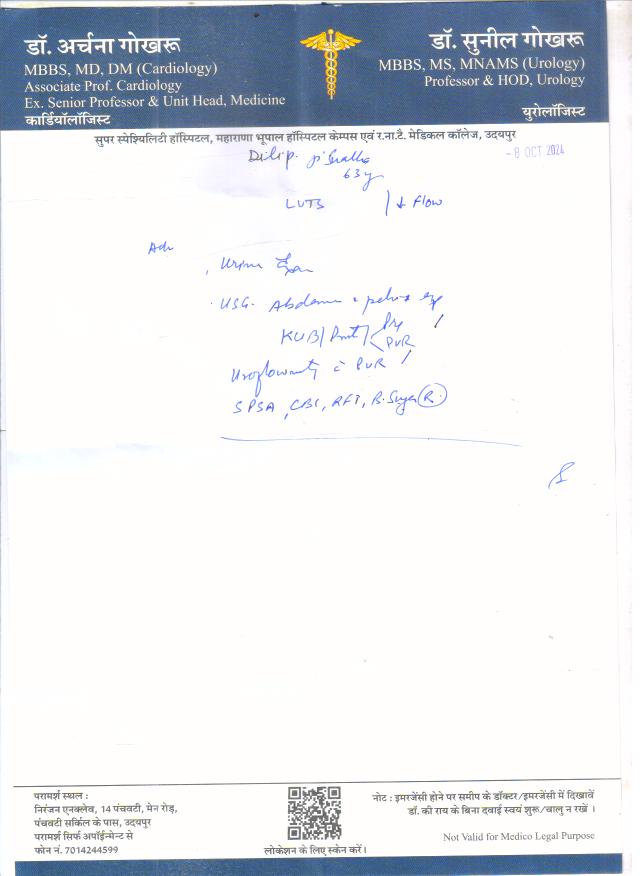 डॉ. अर्चना गोखरू
MBBS, MD, DM (Cardiology)
Associate Prof. Cardiology
Ex. Senior Professor & Unit Head, Medicine
कार्डियॉलॉजिस्ट
डॉ. सुनील गोखरू
MBBS, MS, MNAMS (Urology)
Professor & HOD, Urology
युरोलॉजिस्ट
सुपर स्पेश्यिलिटी हॉस्पिटल, महाराणा भूपाल हॉस्पिटल केम्पस एवं र.ना.टै. मेडिकल कॉलेज, उदयपुर
Dilip ji
- 8 OCT 2024
63y
LUTS ↓ Flow
Adv
Urine
USG. Abdomen & pelvis
KUB/Prost/ Pre
PVR
Uroflowmetry c̄ PVR /
SPSA, CBC, RFT, B. Sugar (R.)
परामर्श स्थल :
निरंजन एनक्लेव, 14 पंचवटी, मेन रोड़,
पंचवटी सर्किल के पास, उदयपुर
परामर्श सिर्फ अपॉईन्मेन्ट से
फोन नं. 7014244599
लोकेशन के लिए स्केन करें।
नोट : इमरजेंसी होने पर समीप के डॉक्टर/इमरजेंसी में दिखावें
डॉ. की राय के बिना दवाई स्वयं शुरू/चालु न रखें ।
Not Valid for Medico Legal Purpose